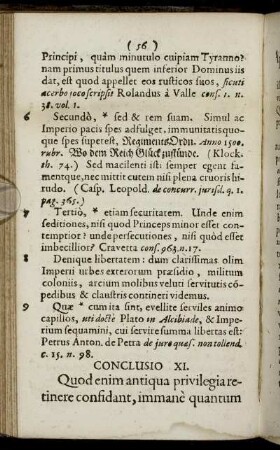 ( 56 )
Principi, quàm minutulo cuipiam Tyranno?
nam primus titulus quem inferior Dominus iis
dat, est quod appellet eos rusticos suos, sicuti
acerbo joco scripsit Rolandus à Valle cons. 1. n.
38. vol. 1.
6 Secundò, * sed & rem suam. Simul ac
Imperio pacis spes adfulget, immunitatis quo-
que spes superest, Regiments Ordn. Anno 1500.
rubr. Wo dem Reich Glück zustünde. (Klock.
th. 74.) Sed macilenti isti semper egent fa-
mentque, nec mittit cutem nisi plena cruoris hi-
rudo. (Casp. Leopold. de concurr. jurisd. q. 1.
pag. 365.)
7 Tertiò, * etiam securitatem. Unde enim
seditiones, nisi quod Princeps minor esset con-
temptior? unde persecutiones, nisi quòd esset
imbecillior? Cravetta cons. 963. n. 17.
8 Denique libertatem: dum clarissimas olim
Imperii urbes exterorum præsidio, militum
coloniis, arcium molibus veluti servitutis cō-
pedibus & claustris contineri videmus.
9 Quæ * cum ita sint, evellite serviles animo
capillos, uti doctè Plato in Alcibiade, & Impe-
rium sequamini, cui servire summa libertas est:
Petrus Anton. de Petra de jure quæs. non tollend.
c. 15. n. 98.
CONCLUSIO XI.
Quod enim antiqua privilegia re-
tinere confidant, immanè quantum